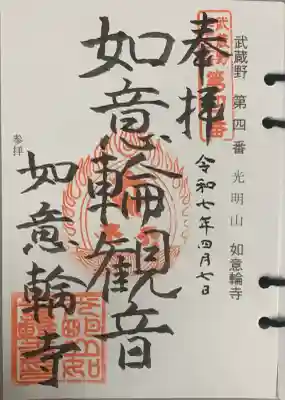 武蔵野 第四番 光明山 如意輪寺
奉拝
武蔵野第四番
令和七年四月七日
如意輪観音
如意輪寺
参拝